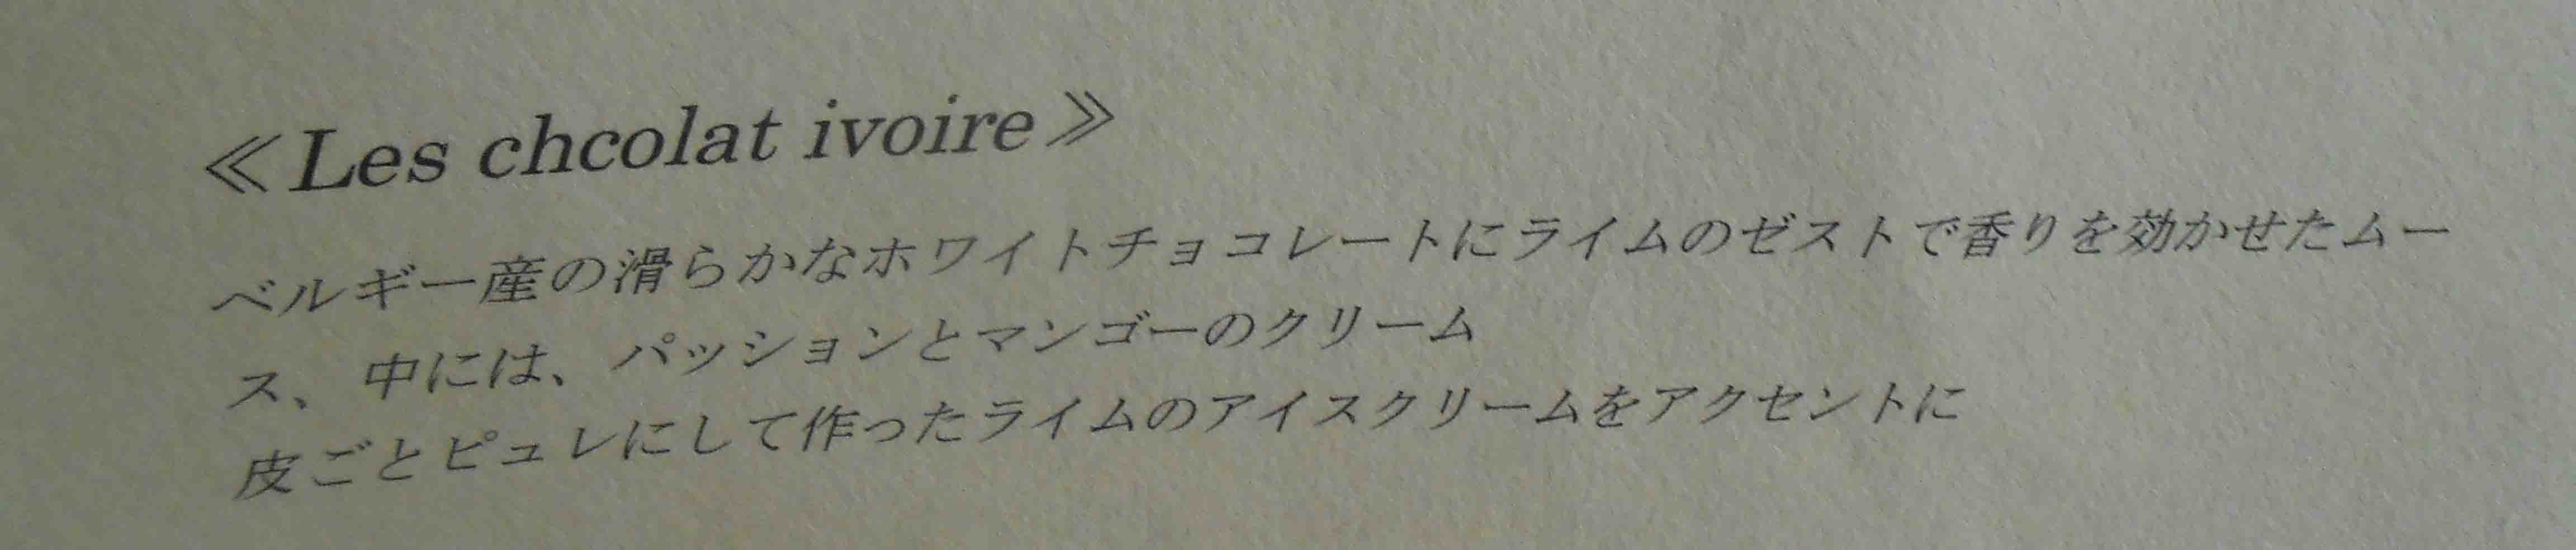 ≪Les chcolat ivoire≫
ベルギー産の滑らかなホワイトチョコレートにライムのゼストで香りを効かせたムー
ス、中には、パッションとマンゴーのクリーム
皮ごとピュレにして作ったライムのアイスクリームをアクセントに